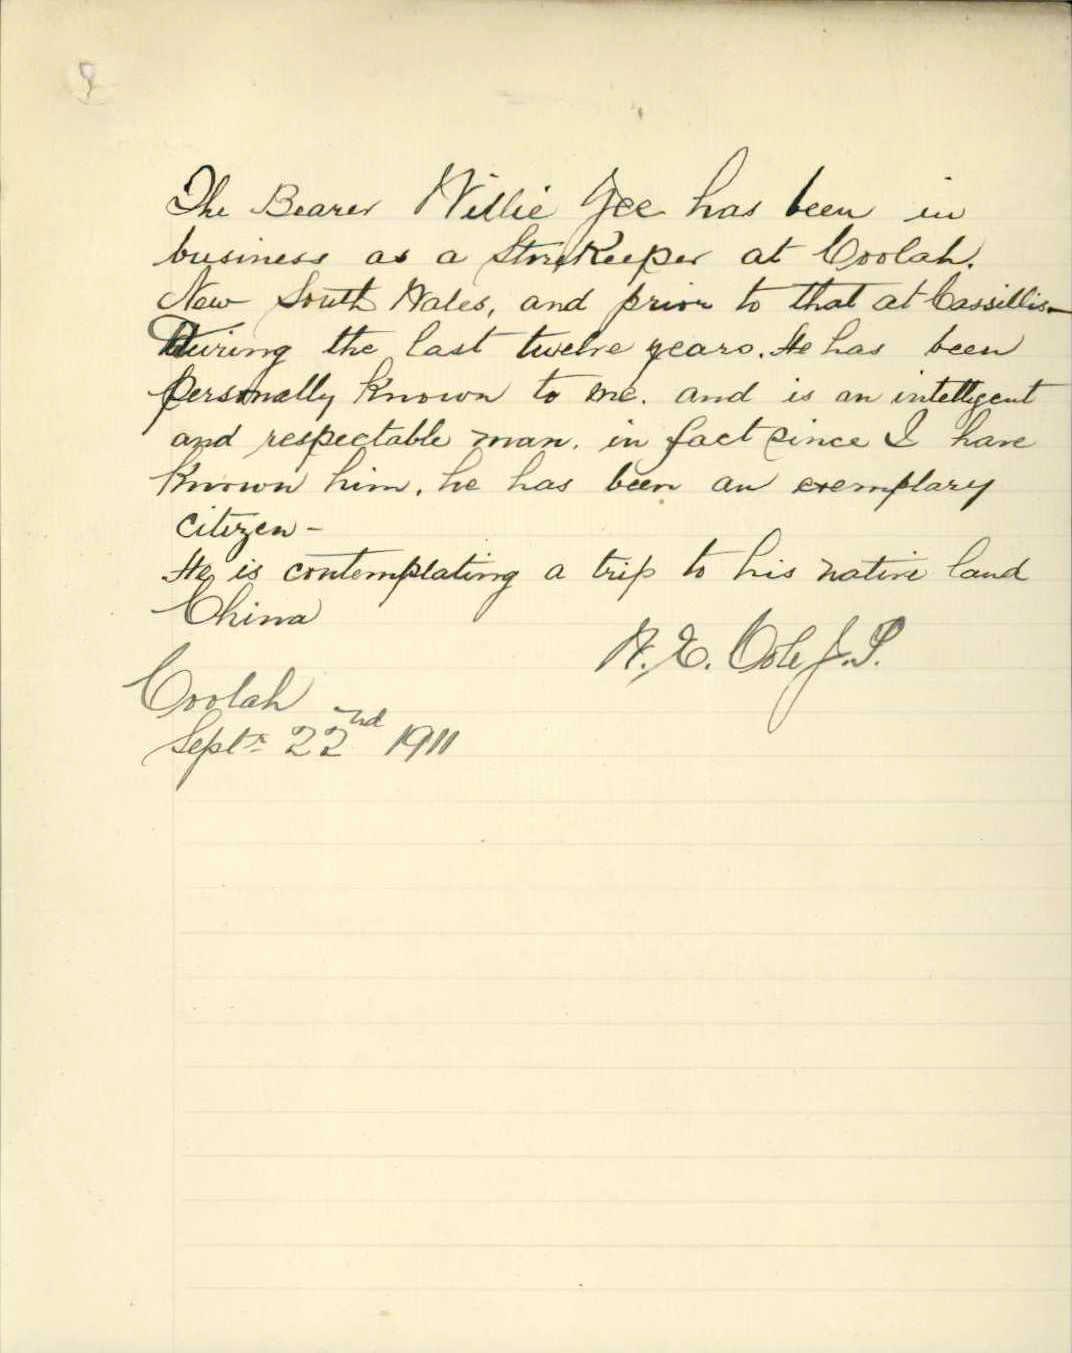 The Bearer Willie Yee has been in
business as a StoreKeeper at Coolah.
New South Wales, and prior to that at Cassillis -
During the last twelve years. He has been
personally Known to me. and is an intelligent
and respectable man. in fact since I have
Known him, he has been an exemplary
citizen -
He is contemplating a trip to his native land
China
Cole J.P.
Coolah
Septr 22nd 1911